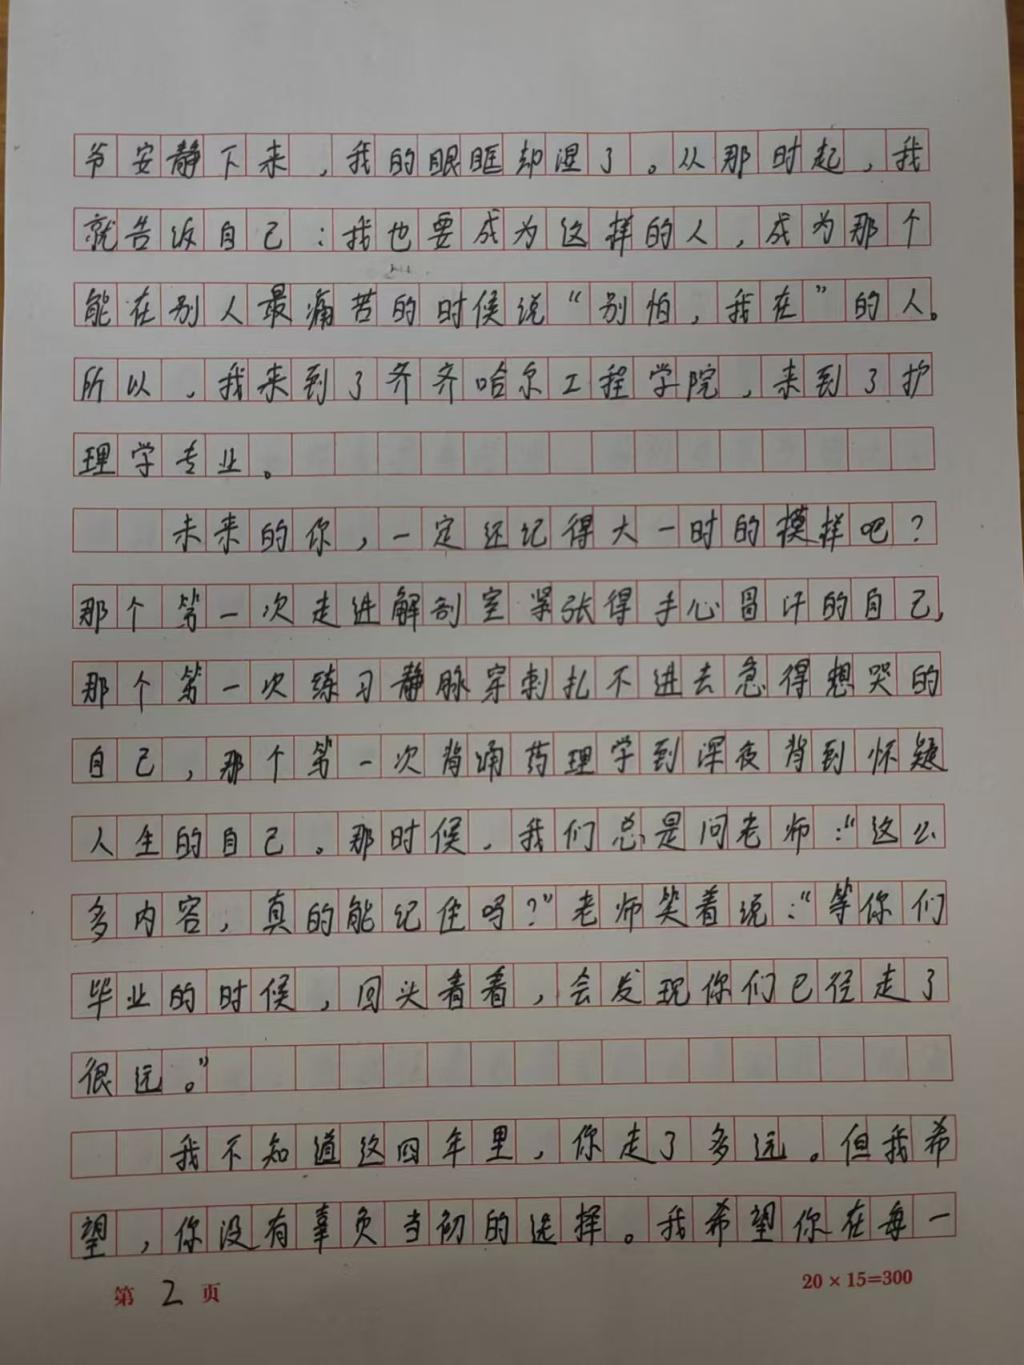 爷安静下来，我的眼眶却湿了。从那时起，我
就告诉自己：我也要成为这样的人，成为那个
能在别人最痛苦的时候说“别怕，我在”的人。
所以，我来到了齐齐哈尔工程学院，来到了护
理学专业。
未来的你，一定还记得大一时的模样吧？
那个第一次走进解剖室紧张得手心冒汗的自己，
那个第一次练习静脉穿刺扎不进去急得想哭的
自己，那个第一次背诵药理学到深夜背到怀疑
人生的自己。那时候，我们总是问老师：“这么
多内容，真的能记住吗？”老师笑着说：“等你们
毕业的时候，回头看看，会发现你们已径走了
很远。”
我不知道这四年里，你走了多远。但我希
望，你没有辜负当初的选择。我希望你在每一
第 2 页
20×15=300